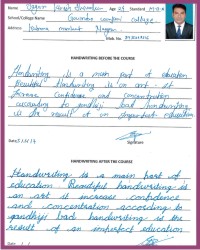 Name Sagar Ganesh Dhomkar Age 23 Standard M.C.A
School/College Name Govindrao wanjari college
Address Katema market Nagpur
HANDWRITING BEFORE THE COURSE
Handwriting is a main part of education
Beautiful Handwriting is an art it
increase confidence concentration
according to gandhiji bad handwriting
is the result of an imperfect education
Signature
HANDWRITING AFTER THE COURSE
Handwriting is a main part of
education Beautiful handwriting is
an art it increase confidence
and concentration according to
gandhiji bad handwriting is the
result of an imperfect education
Date